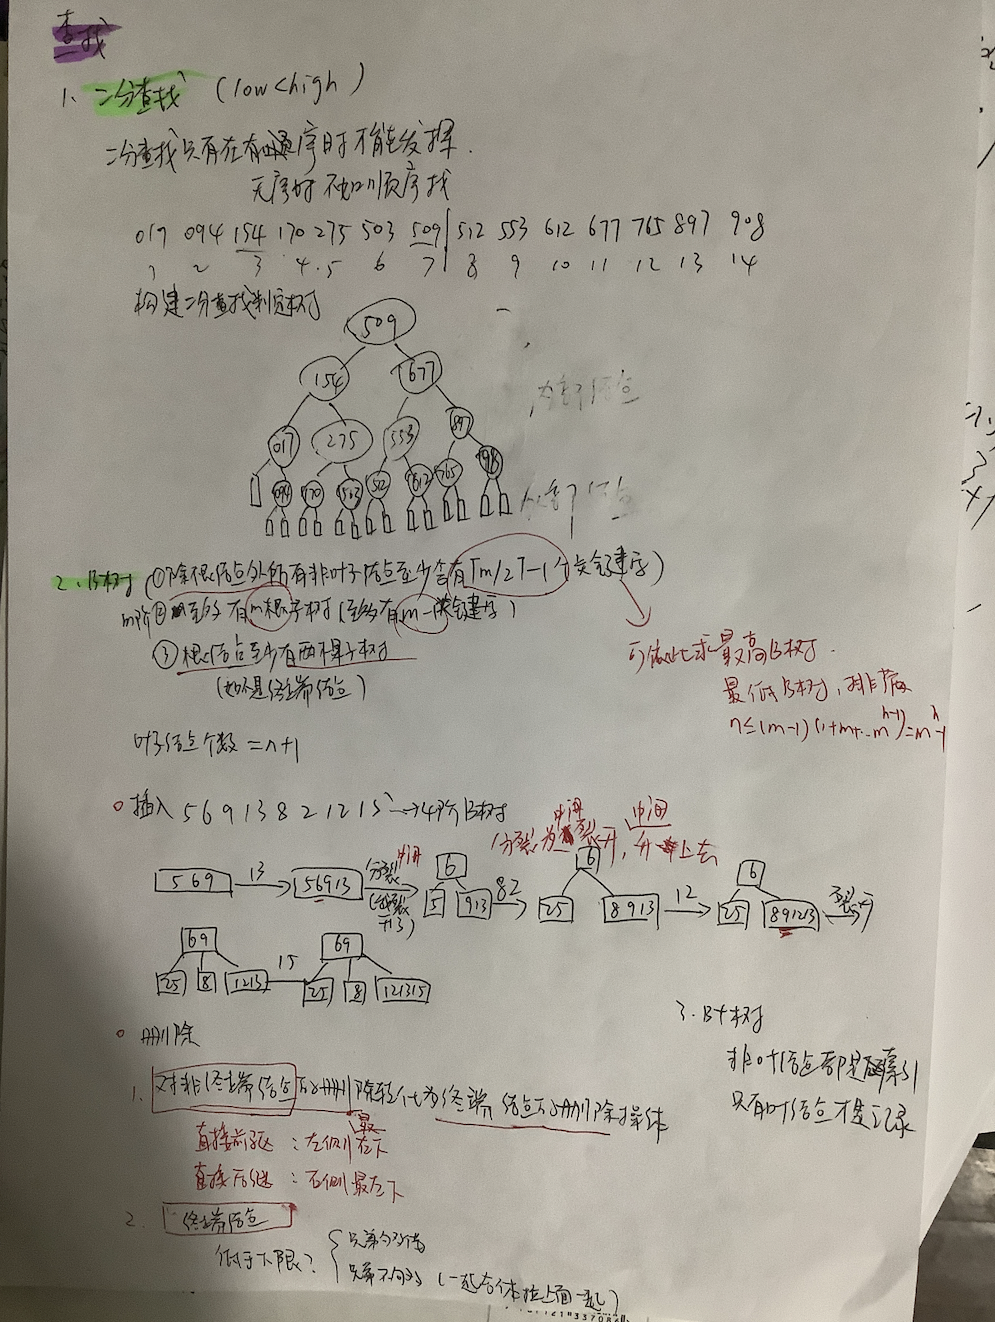 查找
1、二分查找 (low<high)
二分查找只有在有序时才能发挥.
无序时不如顺序找
017 094 154 170 275 503 509 512 553 612 677 765 897 908
1 2 3 4 5 6 7 8 9 10 11 12 13 14
构建二分查找判定树
509
154 677
017 275 553 897
094 170 503 512 612 765 908
2、B树 (①除根结点外所有非叶子结点至少含有⌈m/2⌉-1个关键字)
m阶 ② 至多有m棵子树 (至多有m-1关键字)
③根结点至少有两棵子树
(如不是终端结点)
可依此求最高B树.
最低B树,排满
n≤(m-1)(1+m+..m^h-1)=m^h-1
叶子结点个数=n+1
插入 5 6 9 13 8 2 12 15→4阶B树
中间 中间
分裂为 裂开,升上去
5 6 9 13 5 6 9 13 分裂 中间 6 5 9 13 8 2 6 2 5 8 9 13 12 6 2 5 8 9 12 13 裂开
6 9 2 5 8 12 13 15 6 9 2 5 8 12 13 15
删除
3. B+树
非叶结点都是索引
只有叶结点才是记录
1. 对非终端结点的删除转化为终端结点的删除操作
直接前驱:左侧最右下
直接后继:右侧最左下
2. 终端结点
低于下限?
兄弟够借
兄弟不够 (一起合体拉上面一起)